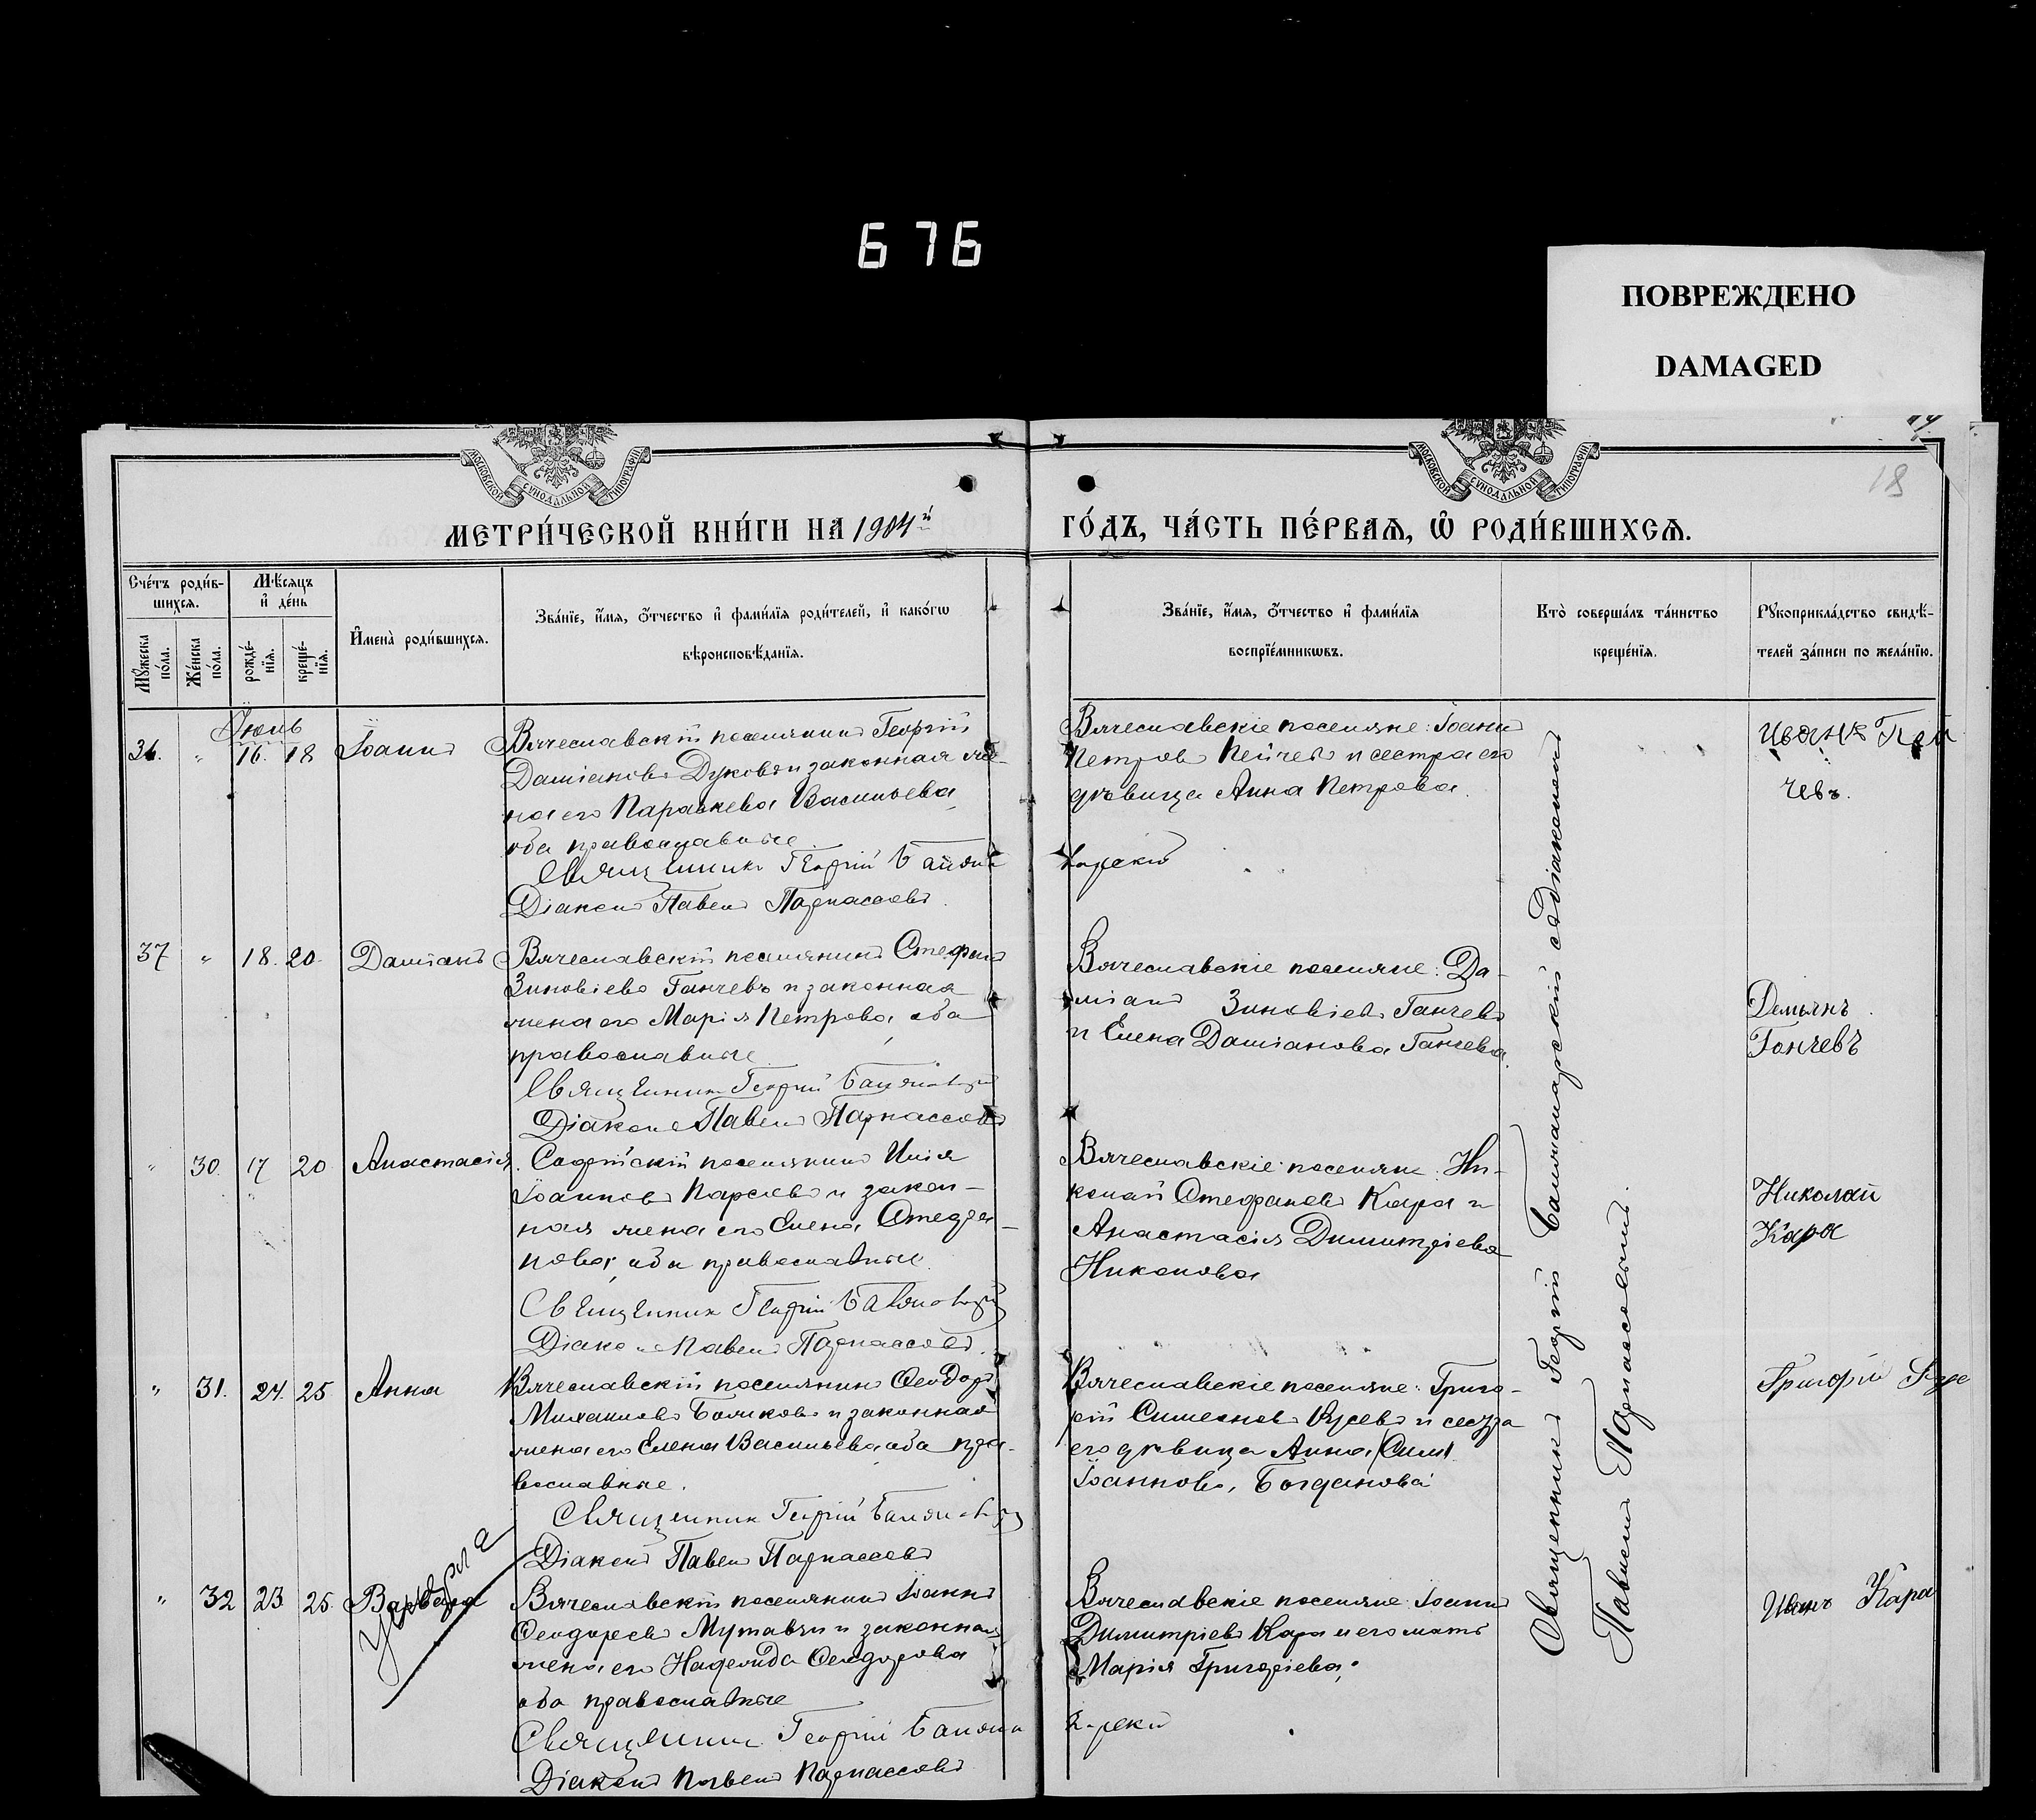 676
ПОВРЕЖДЕНО
DAMAGED
МОСКОВСКОЙ СѴНОДАЛЬНОЙ ТИПОГРАФІИ
МОСКОВСКОЙ СѴНОДАЛЬНОЙ ТИПОГРАФІИ
18
МЕТРИ́ЧЕСКОЙ КНИ́ГИ НА 1904й
ГО́ДЪ, ЧА́СТЬ ПЕ́РВАѦ, Ѿ РОДИ́ВШИХСѦ.
Сче́тъ роди́в-
шихсѧ.
Мꙋ́жеска по́ла.
Же́нска по́ла.
Мѣ́сѧцъ
и҆ де́нь
рожде́-
нїѧ.
креще́-
нїѧ.
И҆мена̀ роди́вшихсѧ.
Зва́нїе, и҆́мѧ, ѻ҆́тчество и҆ фами́лїѧ роди́телей, и҆ како́гѡ
вѣроисповѣ́данїѧ.
Зва́нїе, и҆́мѧ, ѻ҆́тчество и҆ фами́лїѧ
воспрїе́мникѡвъ.
Кто̀ соверша́лъ та́инство
креще́нїѧ.
Рꙋкоприкла́дство свидѣ́-
телей за́писи по жела́нїю.
Іюнь
36. " 16. 18 Іоаннъ
Вячеславскій поселянинъ Георгій
Даміановъ Дуковъ и законная же-
на его Параскева Васильева
оба православные
Священникъ Георгій
Діаконъ Павелъ Парнассовъ.
Вячеславскіе поселяне: Іоаннъ
Петровъ Пейчевъ и сестра его
дѣвица Анна Петрова.
Иванъ Пей
чевъ.
37 " 18. 20. Даміанъ
Вячеславскій поселянинъ Стефанъ
Зиновіевъ Ганчевъ и законная
жена его Марія Петрова, оба
православные
Священникъ Георгій
Діаконъ Павелъ Парнассовъ
Вячеславскіе поселяне: Да-
міанъ Зиновіевъ Ганчевъ
и Елена Даміанова Ганчева
Демьянъ
Ганчевъ
" 30. 17 20 Анастасія
Софійскій поселянинъ Илія
Іоанновъ и закон-
ная жена его Елена Стефа-
нова, оба православные.
Священникъ Георгій
Діаконъ Павелъ Парнассовъ.
Вячеславскіе поселяне: Ни-
колай Стефановъ Кара и
Анастасія Димитріева
Николова
Николай
Кара
" 31. 24. 25 Анна
Вячеславскій поселянинъ Ѳеодоръ
Михаиловъ и законная
жена его Елена Васильева, оба пра-
вославные.
Священникъ Георгій
Діаконъ Павелъ Парнассовъ
Вячеславскіе поселяне: Григо-
рій Симеоновъ Русевъ и сестра
его дѣвица Анна
Іоаннова, Богданова
Григорій
" 32 23 25. Варвара
умерла
Вячеславскій поселянинъ Іоаннъ
Ѳеодоровъ Мутавчи и законная
жена его Надежда Ѳеодорова
оба православные
Священникъ Георгій
Діаконъ Павелъ Парнассовъ
Вячеславскіе поселяне: Іоаннъ
Димитріевъ Кара и его мать
Марія Григоріева.
Иванъ Кара
Священникъ Георгій съ діакономъ
Павломъ Парнассовымъ.